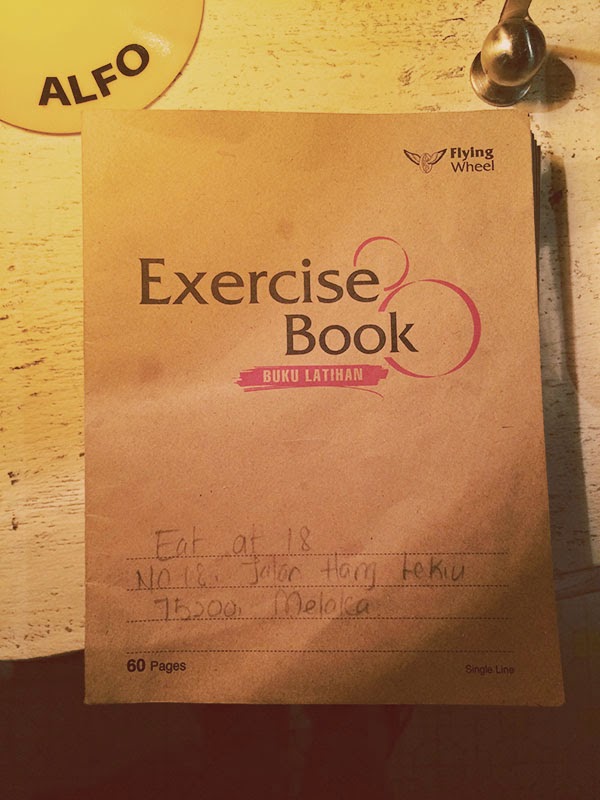 ALFO
Flying
Wheel
Exercise
Book
BUKU LATIHAN
Eat at 18
No 18, Jalan Hang Lekiu
75200, Melaka
60 Pages
Single Line